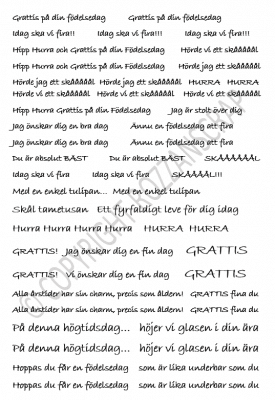 Grattis på din födelsedag Grattis på din födelsedag
Idag ska vi fira!!! Idag ska vi fira!!! Idag ska vi fira!!!
Hipp Hurra och Grattis på din Födelsedag Hörde vi ett skåååål
Hipp Hurra och Grattis på din Födelsedag Hörde vi ett skåååål
Hörde jag ett skåååål Hörde jag ett skåååål HURRA HURRA
Hörde vi ett skåååål Hörde vi ett skåååål Hörde vi ett skåååål
Hipp Hurra Grattis på din Födelsedag Jag är stolt över dig
Jag önskar dig en bra dag Ännu en födelsedag att fira
Jag önskar dig en bra dag Ännu en födelsedag att fira
Du är absolut BÄST Du är absolut BÄST SKÅÅÅÅÅL
Idag ska vi fira Idag ska vi fira SKÅÅÅÅL!!!
Med en enkel tulipan... Med en enkel tulipan
Skål tametusan Ett fyrfaldigt leve för dig idag
Hurra Hurra Hurra Hurra HURRA HURRA
GRATTIS! Jag önskar dig en fin dag GRATTIS
GRATTIS! Vi önskar dig en fin dag GRATTIS
Alla årstider har sin charm, precis som åldern! GRATTIS fina du
Alla årstider har sin charm, precis som åldern! GRATTIS fina du
På denna högtidsdag... höjer vi glasen i din ära
På denna högtidsdag... höjer vi glasen i din ära
Hoppas du får en födelsedag som är lika underbar som du
Hoppas du får en födelsedag som är lika underbar som du